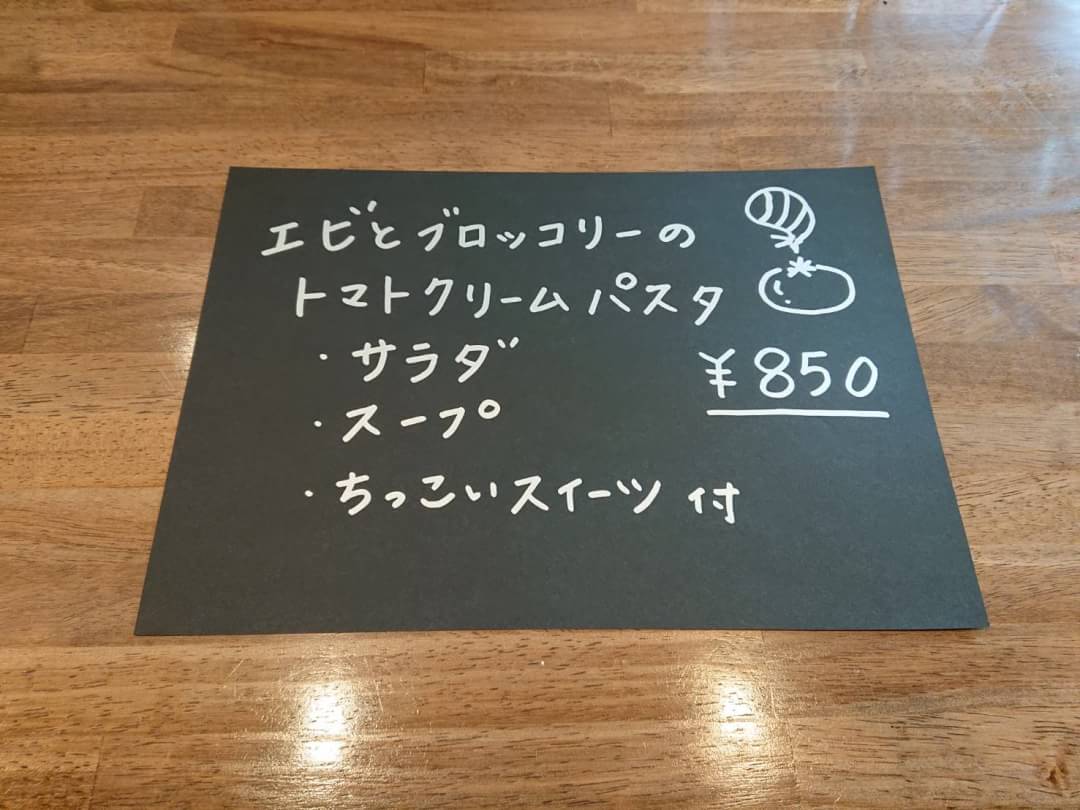 エビとブロッコリーの
トマトクリームパスタ
・サラダ
¥850
・スープ
・ちっこいスイーツ 付